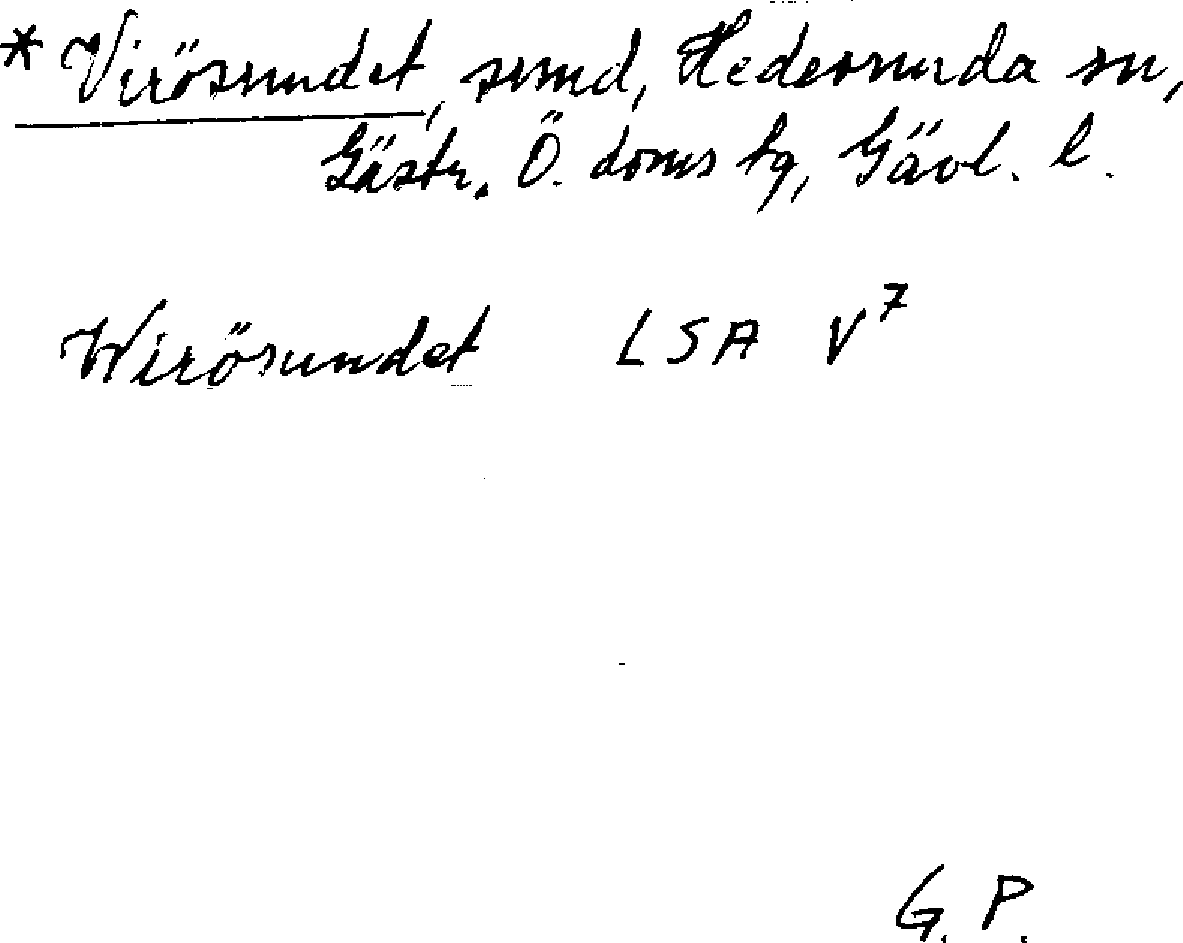 * Virösundet, sund, Hedesunda sn,
Gästr. Ö. doms tg, Gävl. l.
Wirösundet LSA V⁷
G. P.